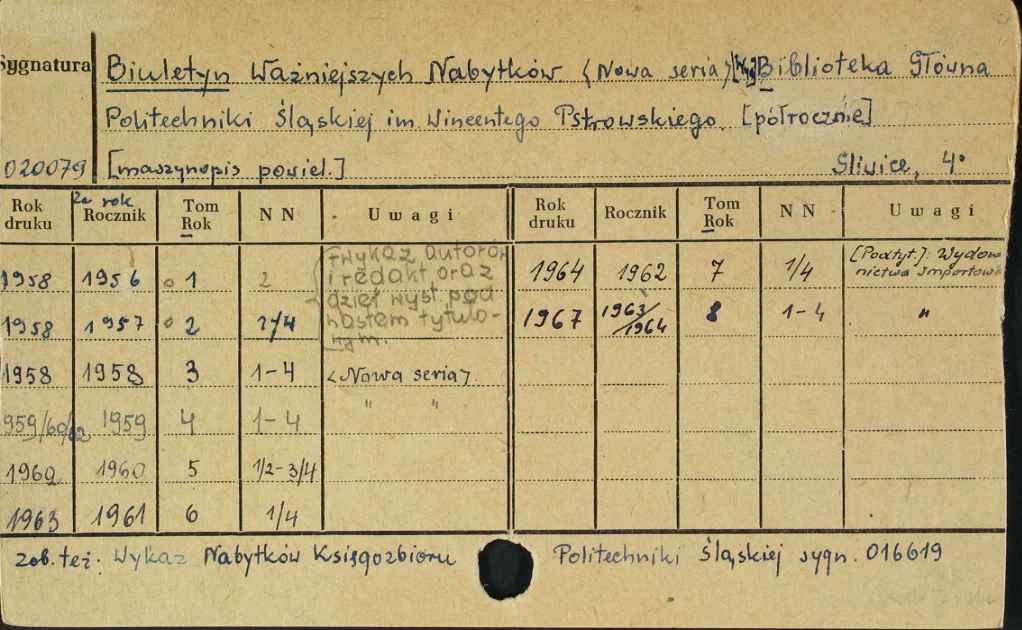 Sygnatura
Biuletyn Ważniejszych Nabytków <Nowa seria> Biblioteka Główna
Politechniki Śląskiej im. Wincentego Pstrowskiego. [półrocznie]
020079 [maszynopis powiel.] Gliwice, 4°
Rok druku Za rok Rocznik Tom Rok NN Uwagi Rok druku Rocznik Tom Rok NN Uwagi
1958 1956 o 1 2 [Wykaz autorów i redakt. oraz dzieł wyst. pod hasłem tytuło-wym. 1964 1962 7 1/4 [Podtyt.]: Wydawnictwa importowa
1958 1957 o 2 2/4 1967 1963/1964 8 1-4 "
1958 1958 3 1-4 <Nowa seria>.
959/60/62 1959 4 1-4 " "
1962 1960 5 1/2-3/4
1963 1961 6 1/4
zob. też: Wykaz Nabytków Księgozbioru Politechniki Śląskiej sygn. 016619